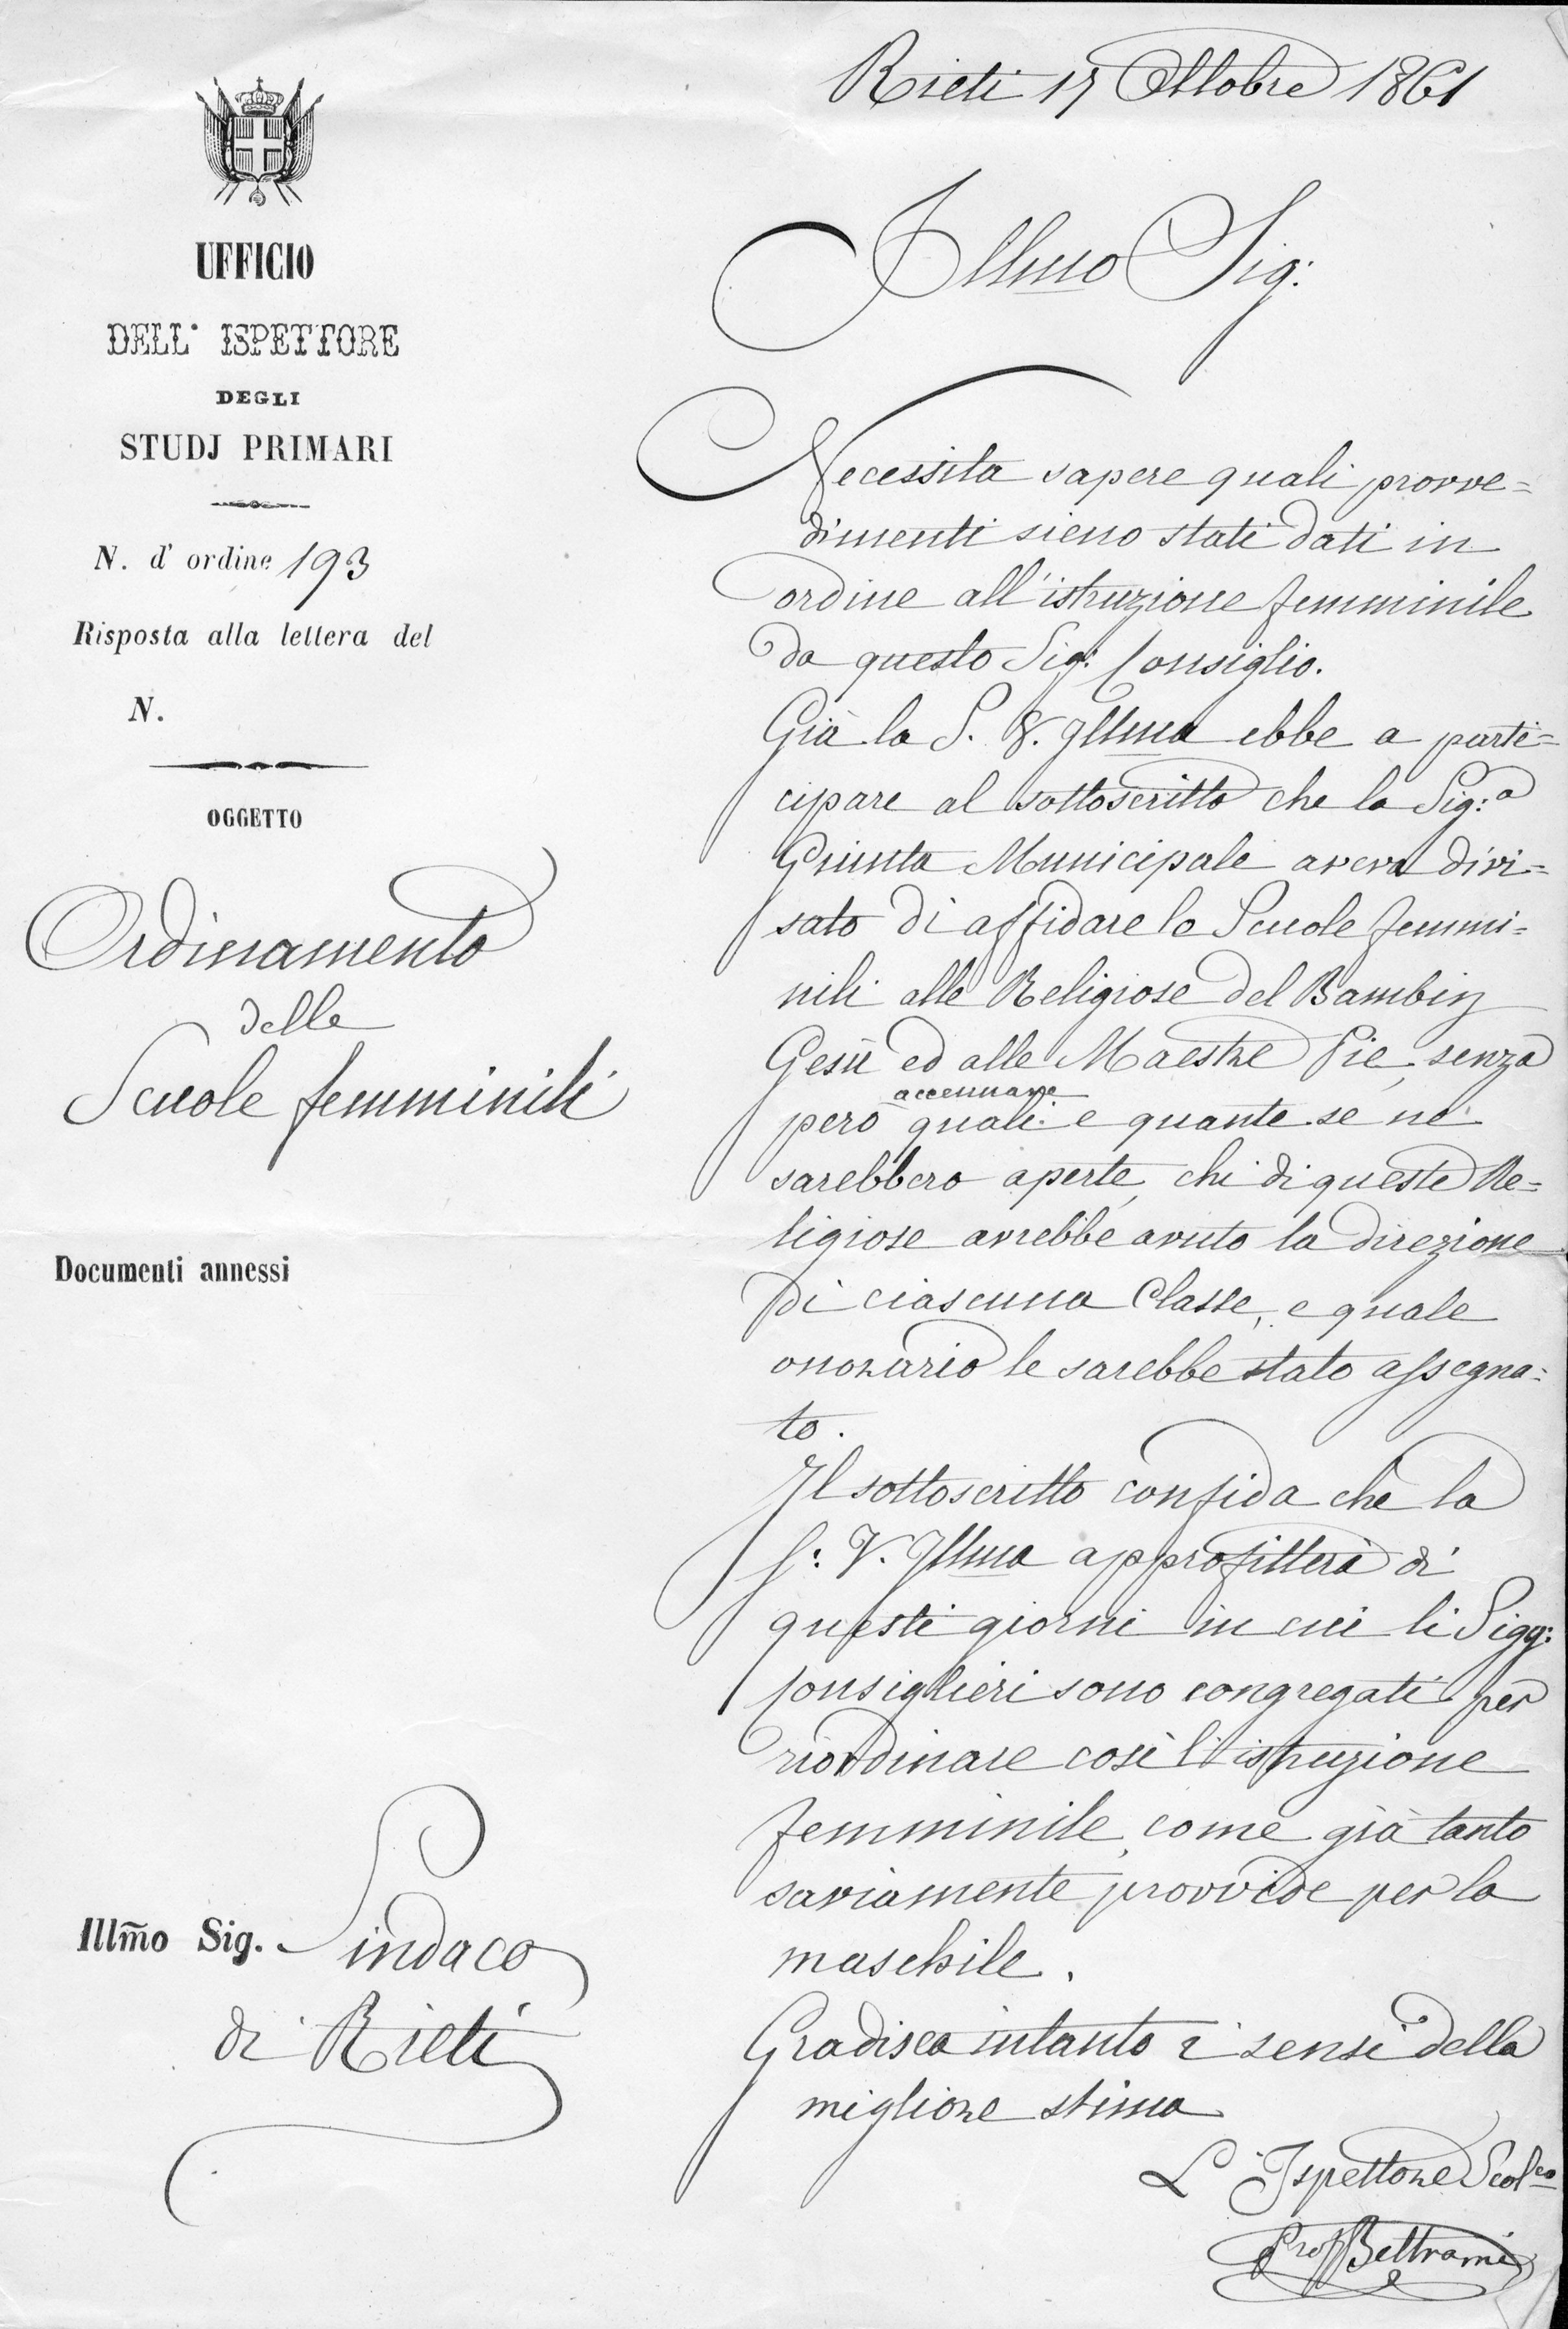 UFFICIO
DELL' ISPETTORE
DEGLI
STUDJ PRIMARI
N. d' ordine 193
Risposta alla lettera del
N.
OGGETTO
Ordinamento
delle
Scuole femminili
Documenti annessi
Illm̃o Sig. Sindaco
di Rieti
Rieti 17 Ottobre 1861
Illmo Sig:
Necessita sapere quali provve=
dimenti sieno stati dati in
ordine all'istruzione femminile
da questo Sig: Consiglio.
Già la S. V. Illma ebbe a parti=
cipare al sottoscritto che la Sig:a
Giunta Municipale aveva divi=
sato di affidare le Scuole femmi=
nili alle Religiose del Bambin
Gesù ed alle Maestre Pie, senza
però accennare quali e quante se ne
sarebbero aperte, chi di queste Re=
ligiose avrebbe avuto la direzione
di ciascuna Classe, e quale
onorario le sarebbe stato assegna=
to.
Il sottoscritto confida che la
S: V. Illma approfitterà di
questi giorni in cui li Sigg:
Consiglieri sono congregati per
riordinare così l'istruzione
femminile, come già tanto
saviamente provvide per la
maschile.
Gradisca intanto i sensi della
migliore stima
L'Ispettore Scolco
Prof Beltrami